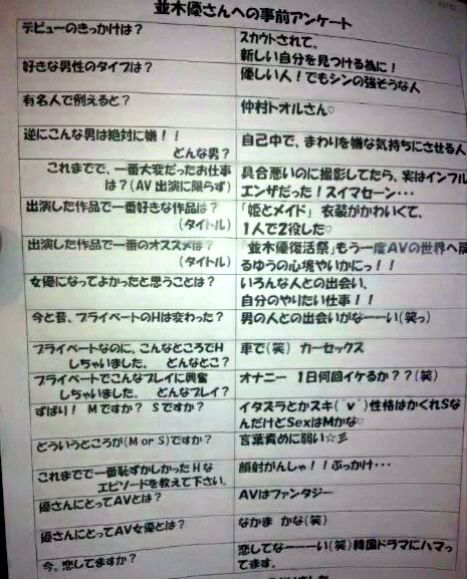 並木優さんへの事前アンケート
デビューのきっかけは?
スカウトされて、
新しい自分を見つける為に!
好きな男性のタイプは?
優しい人!でもシンの強そうな人
有名人で例えると?
仲村トオルさん♡
逆にこんな男は絶対に嫌!!
どんな男?
自己中で、まわりを嫌な気持ちにさせる人
これまでで、一番大変だったお仕事
は?(AV出演に限らず)
具合悪いのに撮影してたら、実はインフル
エンザだった!スイマセーン・・・
出演した作品で一番好きな作品は?
(タイトル)
「姫とメイド」 衣装がかわいくて、
1人で2役した♡
出演した作品で一番のオススメは?
(タイトル)
「並木優復活祭」もう一度AVの世界へ戻
るゆうの心境やいかにっ!!
女優になってよかったと思うことは?
いろんな人との出会い、
自分のやりたい仕事!!
今と昔、プライベートのHは変わった?
男の人との出会いがなーーい(笑っ)
プライベートなのに、こんなところでH
しちゃいました。 どんなとこ?
車で(笑) カーセックス
プライベートでこんなプレイに興奮
しちゃいました。 どんなプレイ?
オナニー 1日何回イケるか??(笑)
ずばり! Mですか? Sですか?
イタズラとかスキ(´v`)性格はかくれS
なんだけどSexはMかな♡
どういうところが(M or S)ですか?
言葉責めに弱い☆彡
これまでで一番恥ずかしかったHな
エピソードを教えて下さい。
顔射がんしゃ!!ぶっかけ・・・
優さんにとってAVとは?
AVはファンタジー
優さんにとってAV女優とは?
なかま かな(笑)
今、恋してますか?
恋してなーーーい(笑)韓国ドラマにハマっ
てます。